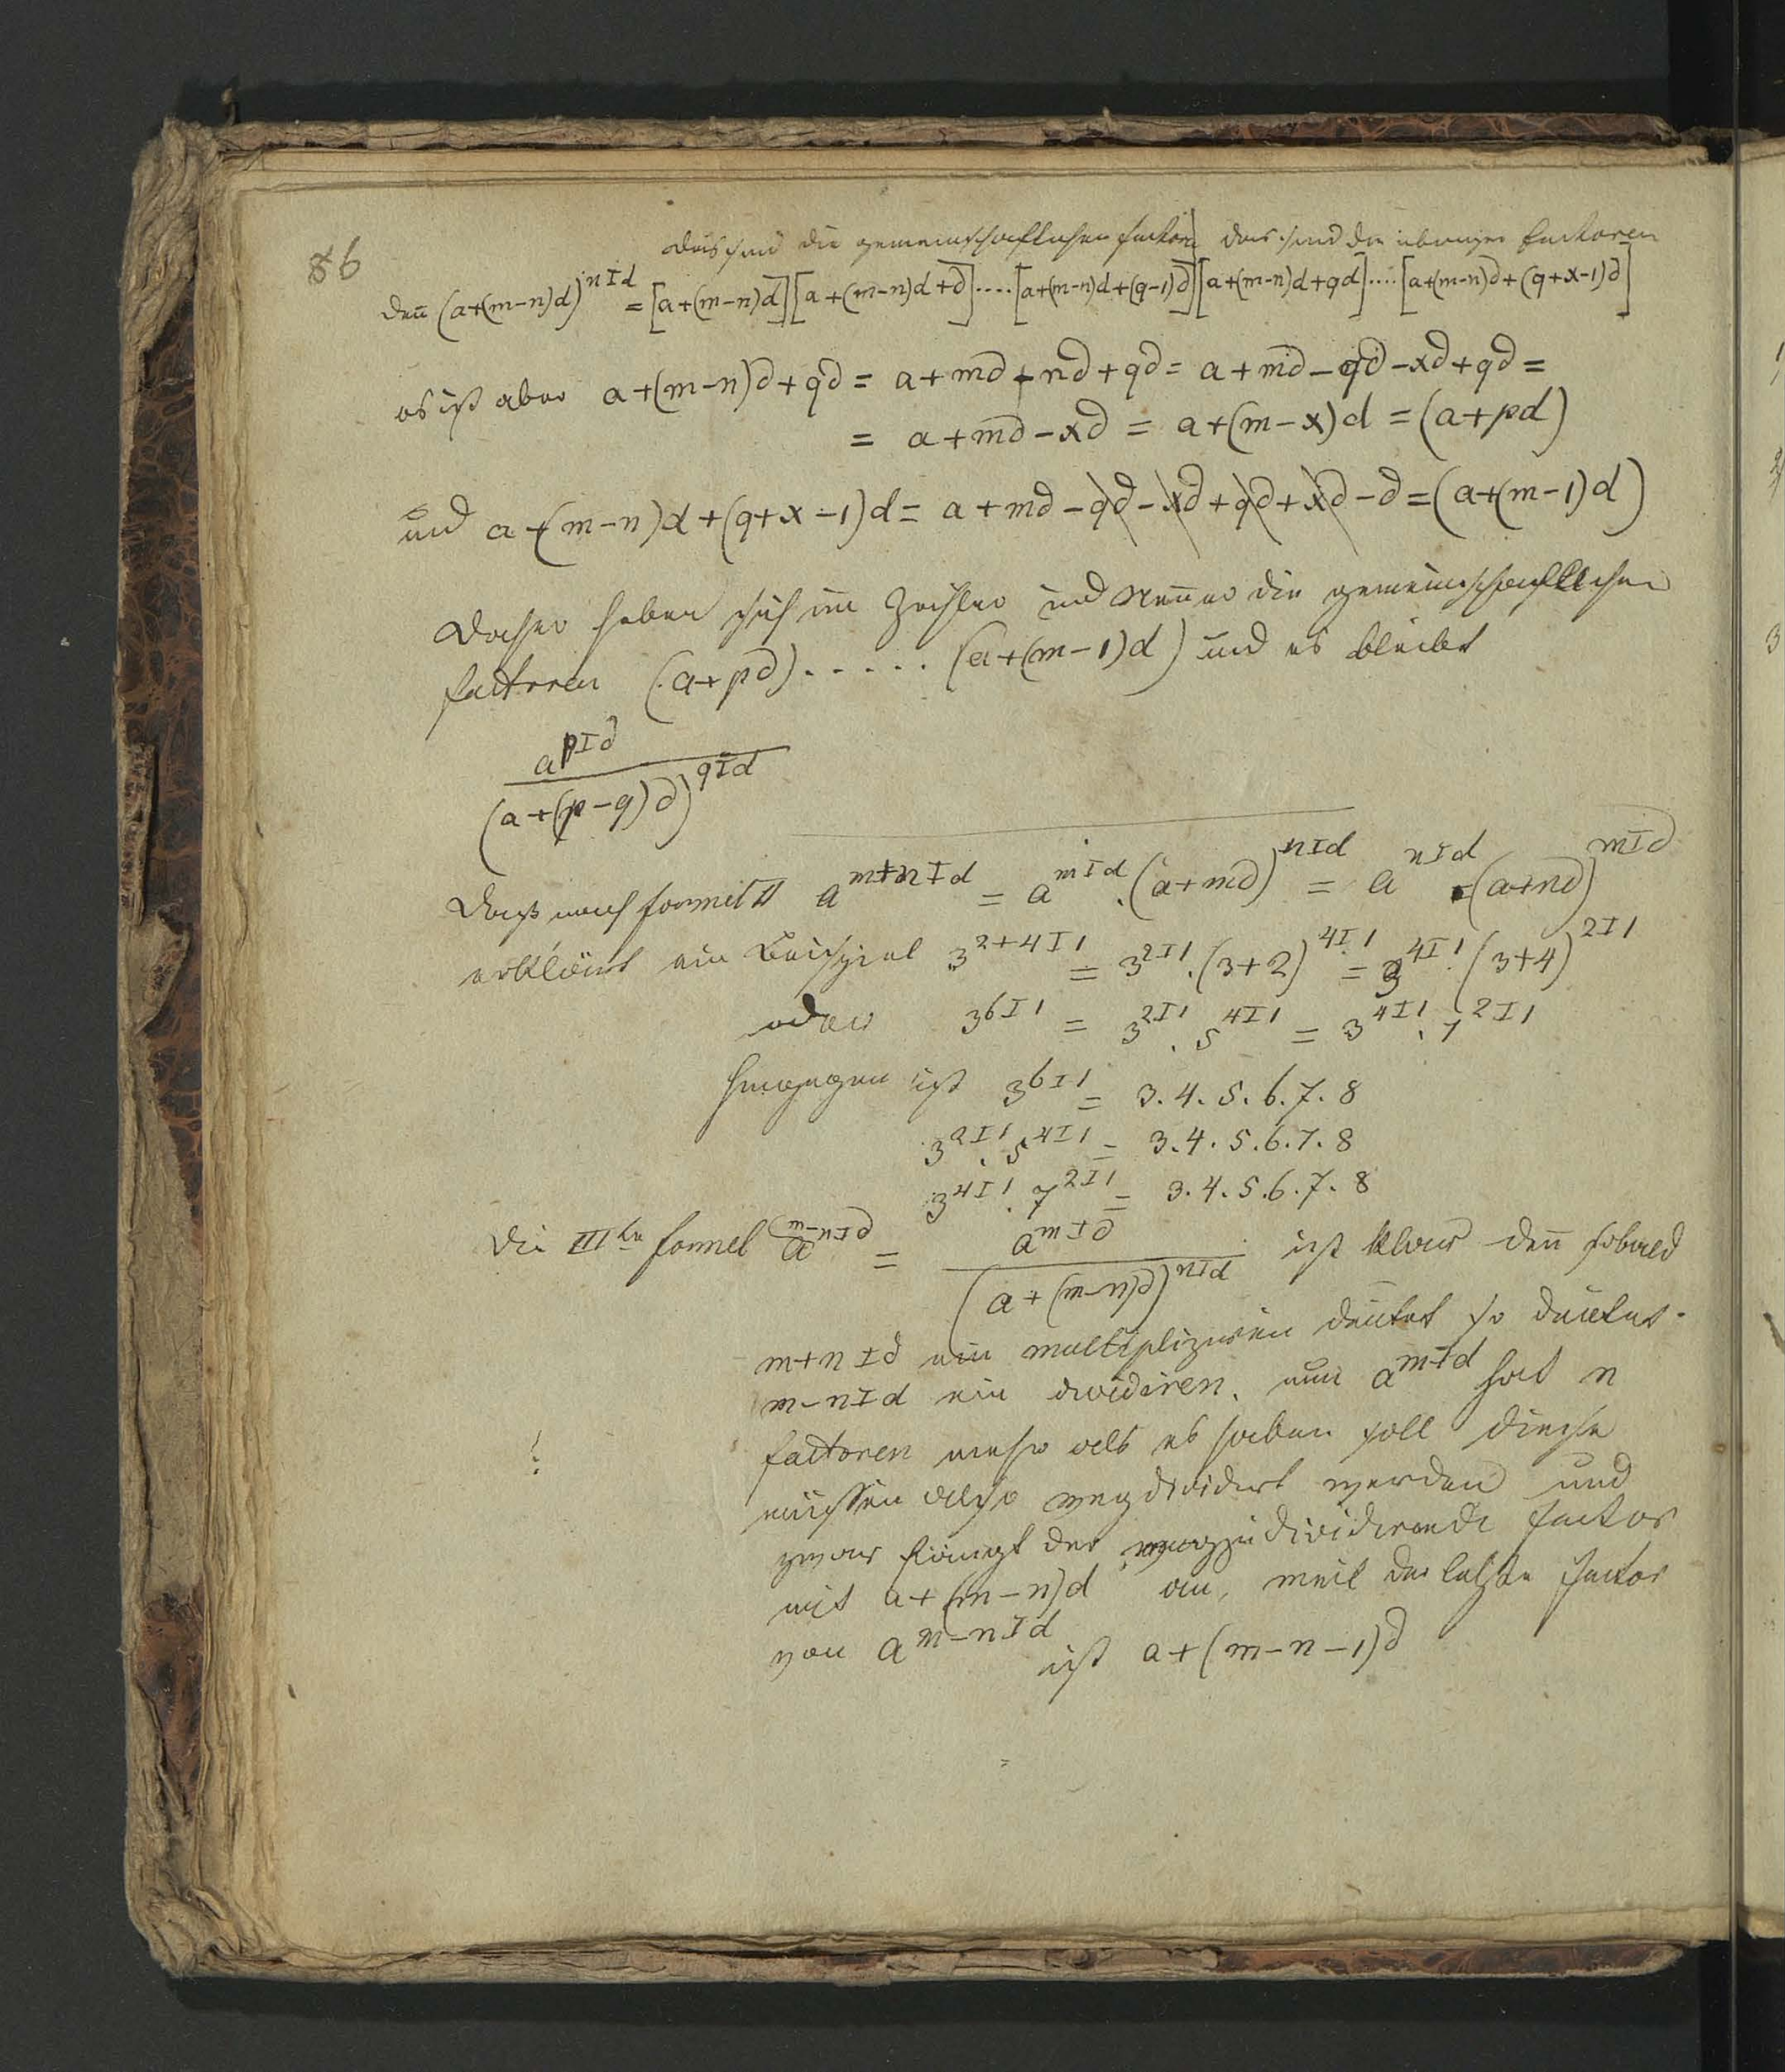 86
das sind die gemeinschaftlichen factoren | das sind die übrigen factoren
den̄ (a+(m-n)d)^{nId} = [a+(m-n)d][a+(m-n)d+d]....[a+(m-n)d+(q-1)d][a+(m-n)d+qd]....[a+(m-n)d+(q+x-1)d]
es ist aber a+(m-n)d+qd = a+md-nd+qd = a+md-qd-xd+qd =
= a+md-xd = a+(m-x)d = (a+pd)
und a+(m-n)d+(q+x-1)d = a+md-qd-xd+qd+xd-d = (a+(m-1)d)
Daher heben sich im Zähler und Nen̄er die gemeinschaftlichen
factoren (a+pd)......(a+(m-1)d) und es bleibt
a^{pId}
(a+(p-q)d)^{qId}
Daß nach formel II a^{m+nId} = a^{mId}.(a+md)^{nId} = a^{nId}.(a+nd)^{mId}
erklärt ein Beispiel 3^{2+4I1} = 3^{2I1}.(3+2)^{4I1} = 3^{4I1}.(3+4)^{2I1}
oder 3^{6I1} = 3^{2I1}.5^{4I1} = 3^{4I1}.7^{2I1}
hingegen ist 3^{6I1} = 3.4.5.6.7.8
3^{2I1}.5^{4I1} = 3.4.5.6.7.8
3^{4I1}.7^{2I1} = 3.4.5.6.7.8
Die III^{te} formel a^{m-nId} = a^{mId} ist klar den̄ sobald
(a+(m-n)d)^{nId}
m+nId ein multipliziren deutet so deutet
m-nId ein dividiren. nun a^{mId} hat n
factoren mehr als es haben soll diese
müssen also wegdividirt werden und
zwar fängt der wegzudividirende factor
mit a+(m-n)d an, weil der letzte factor
von a^{m-nId} ist a+(m-n-1)d